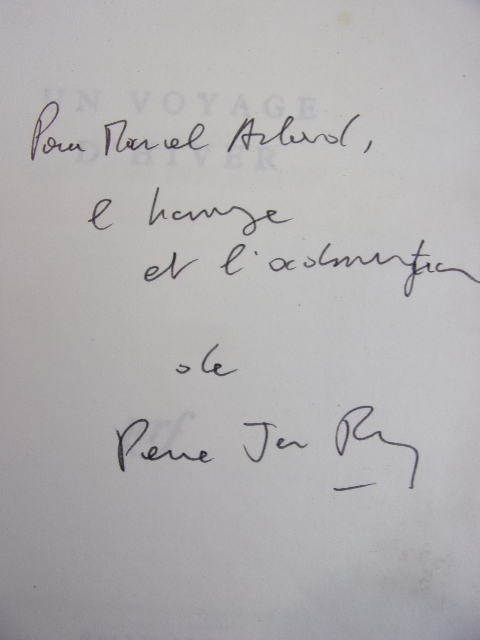 UN VOYAGE
D'HIVER
Pour Marcel Arland,
l'hommage
et l'admiration
de
nrf
Pierre Jean Rémy